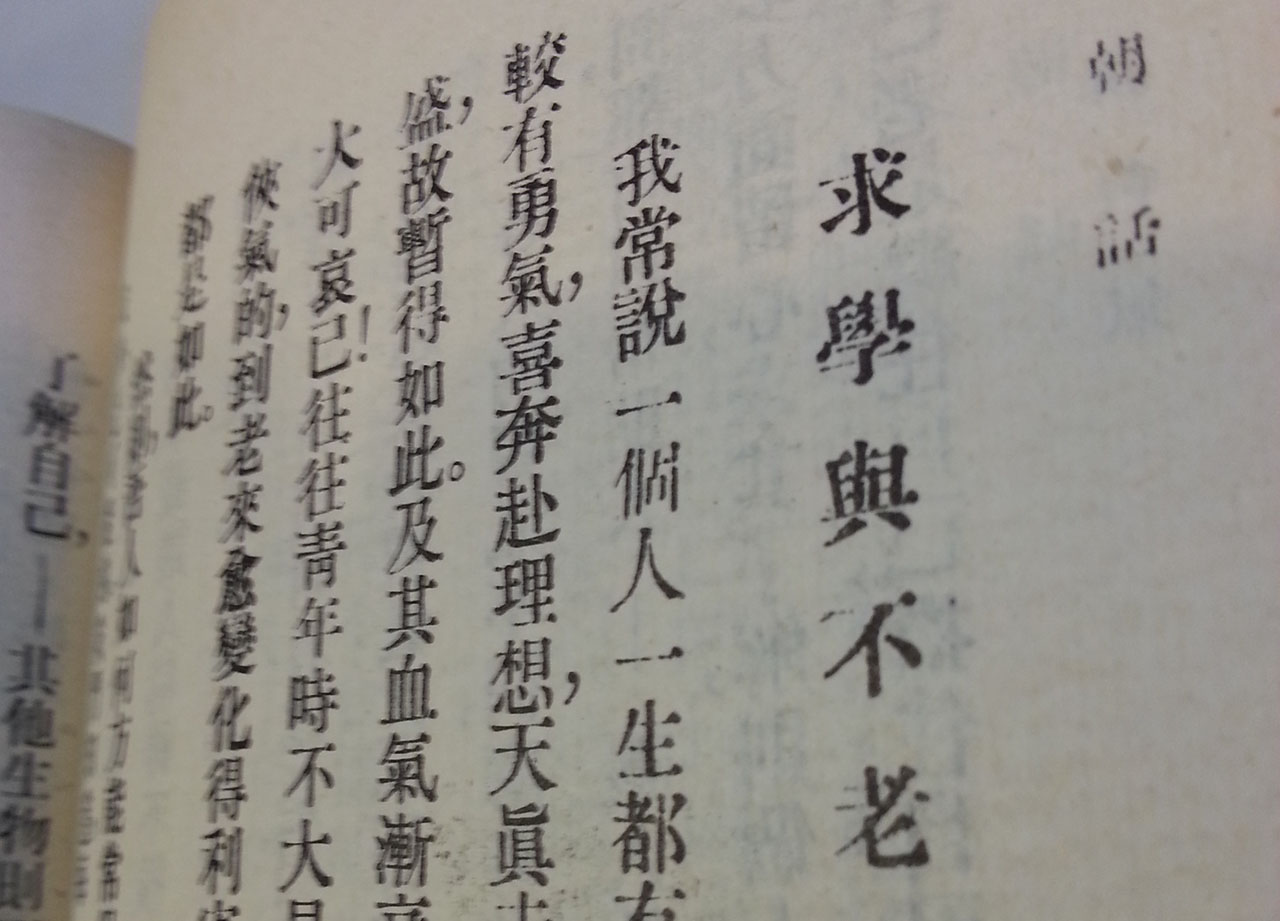 朝話
求學與不老
我常說一個人一生都有
較有勇氣，喜奔赴理想，天眞
盛，故暫得如此。及其血氣漸
大可哀已！往往青年時不大
俠氣的，到老來愈變化得利
都是如此。
老人如何方能常
了解自己，——其他生物則